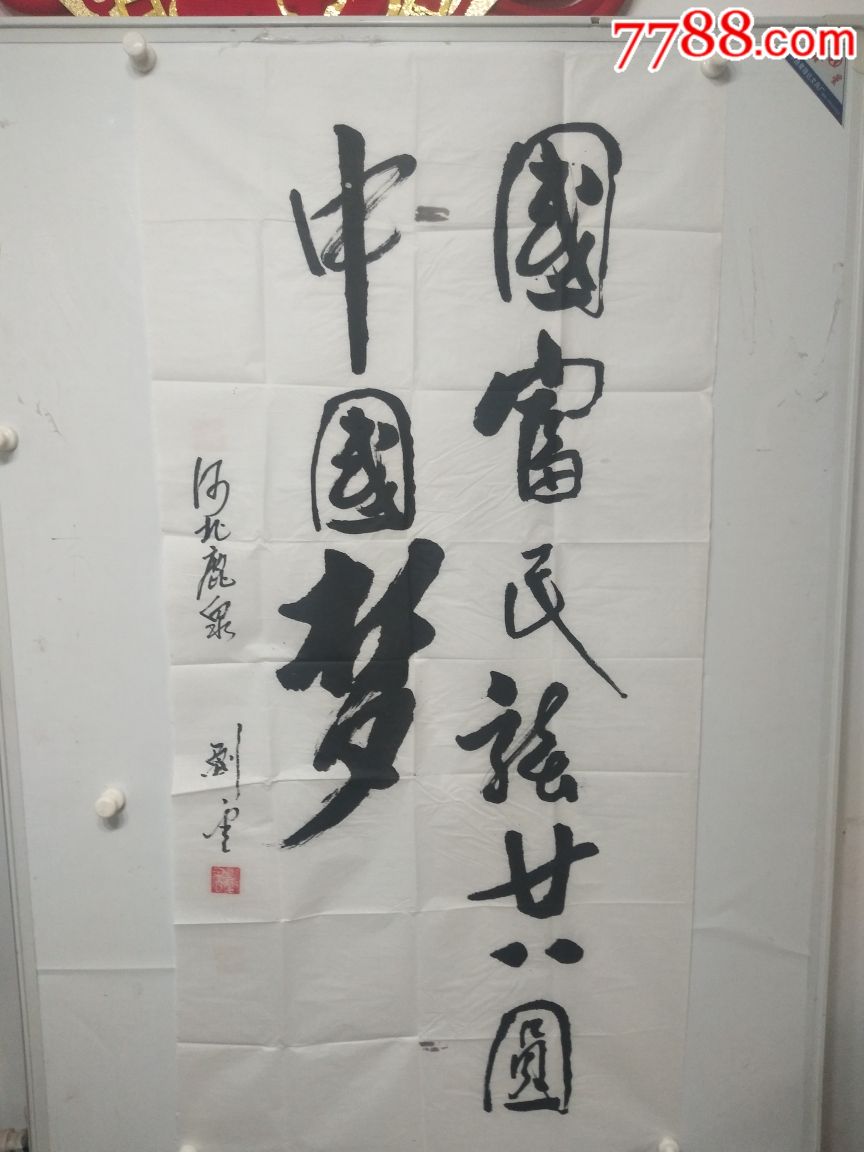 7788.com
國富民強共圓
中國梦
河北鹿泉
劉雲